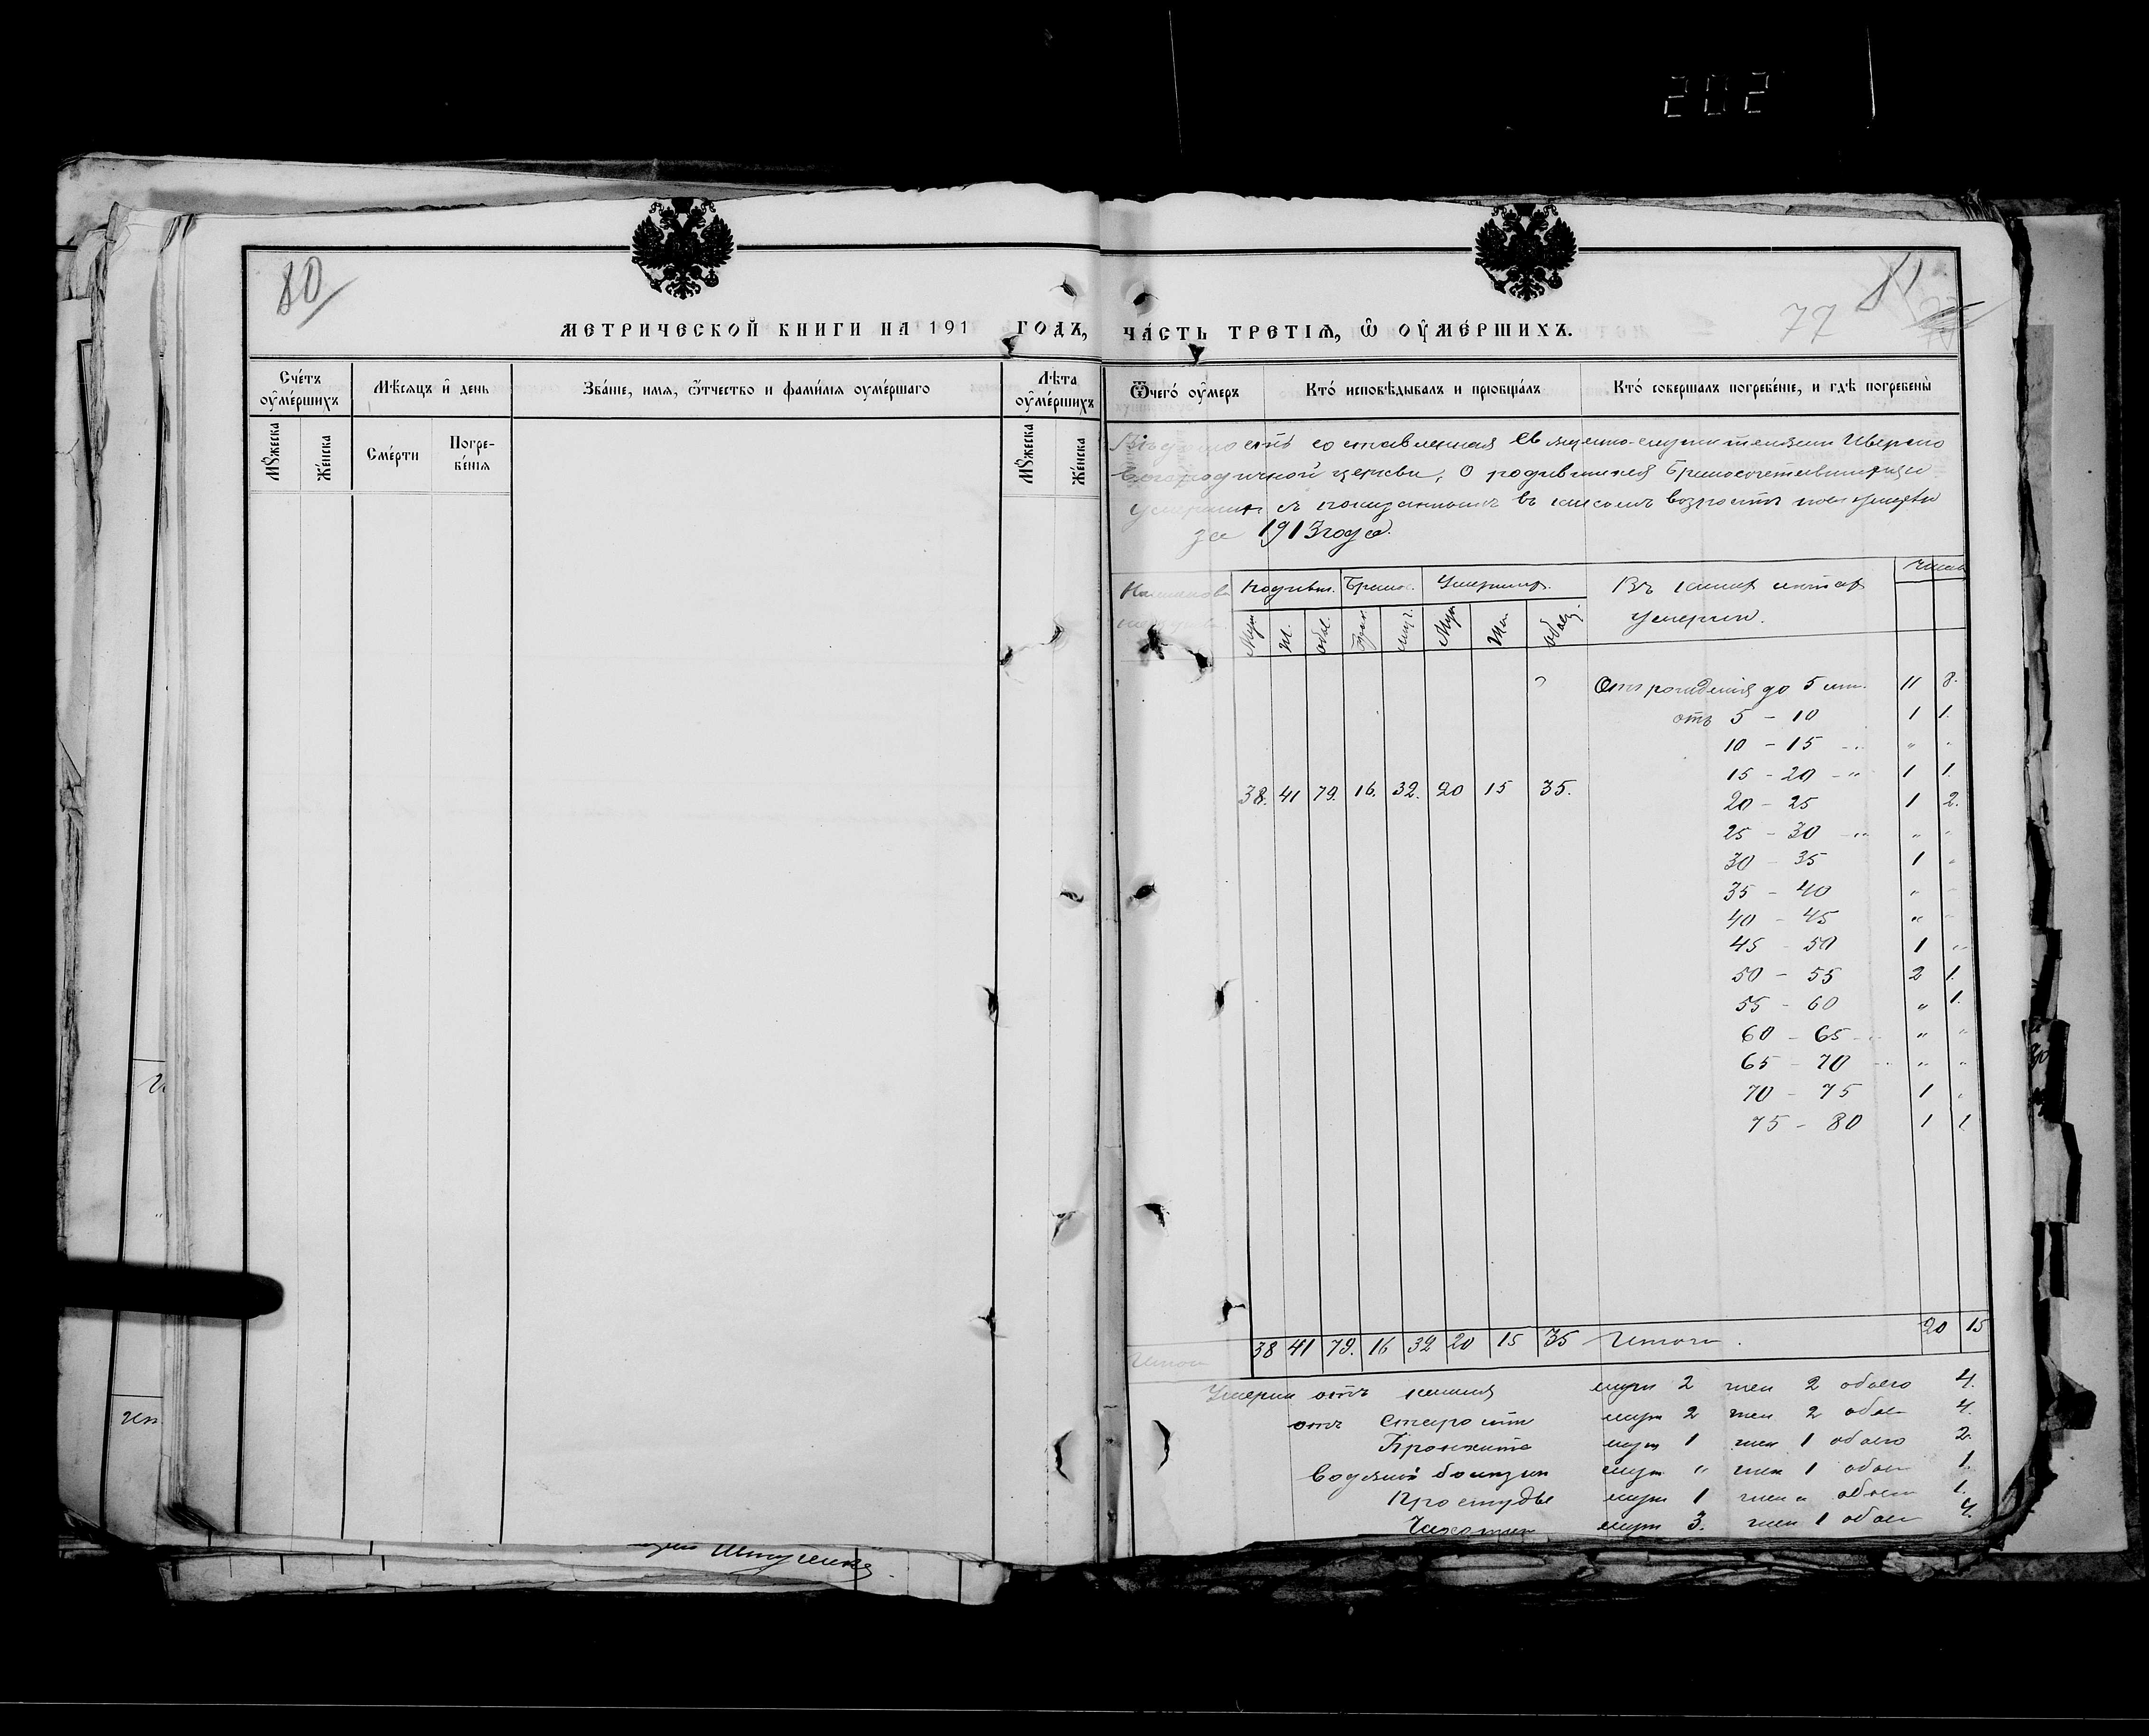 202
80
81
77
МЕТРИЧЕСКОЙ КНИГИ НА 191 ГОДЪ, ЧА́СТЬ ТРЕТІѦ, Ѡ ОУ҆МЕ́РШИХЪ.
Сче́тъ оу҆ме́ршихъ
Мѣ́сяцъ и҆ день
Зва́ніе, имѧ, ѻ҆́тчество и фами́лїѧ оуме́ршаго
Лѣта оу҆ме́ршихъ
Ѿчего́ оу҆́меръ
Кто́ исповѣ́дывалъ и прїобща́лъ
Кто́ соверша́лъ погребе́нїе, и гдѣ̀ погребены̀
Мꙋ́жеска
Же́нска
Сме́рти
Погре-
бе́нїѧ
Мꙋ́жеска
Же́нска
Вѣдомость составленная Священно-служителями Иверско
Богородичной церкви, о родившихся бракосочетавшихся и
умершихъ съ показаніемъ въ какомъ возрастѣ
за 1913 года.
Родивш. Брако. Умершихъ. Въ какихъ лѣтахъ Число
умерли.
Муж Ж. обое. Муж Жен. обоег.
Отъ рожденія до 5 лѣт. 11 8.
отъ 5 - 10 1 1.
10 - 15 - " " "
15 - 20 - " 1 1.
38. 41 79. 16. 32. 20 15 35.
20 - 25 1 2.
25 - 30 - " " "
30 - 35 1 "
35 - 40 " "
40 - 45 " "
45 - 50 1 "
50 - 55 2 1.
55 - 60 " 1.
60 - 65 - " " "
65 - 70 - " " "
70 - 75 1 "
75 - 80 1 1
Итого 38 41 79. 16 32 20 15 35 Итого. 20 15
Умерли отъ кашля муж 2 жен 2 обоего 4.
отъ старости муж 2 жен 2 обое 4.
Бронхита муж 1 жен 1 обоего 2.
Водяной болѣзни муж " жен 1 обоег 1.
Простуды муж 1 жен " обоег 1.
Чахотки муж 3. жен 1 обоег 4.